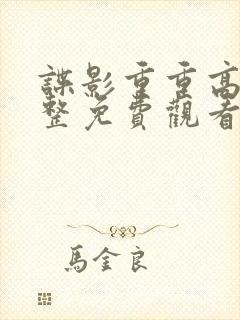 諜影重重高
整免費觀看
馬金良